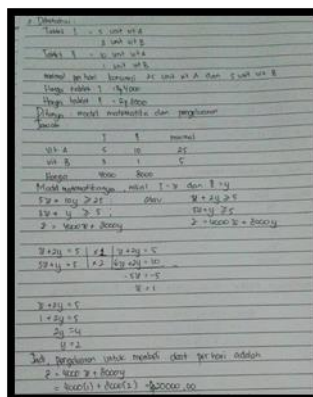 Diketahui :
Tablet I - 5 unit vit A
3 unit vit B
Tablet II - 10 unit vit A
1 unit vit B
minimal per hari konsumsi 25 unit vit A dan 5 unit vit B
Harga tablet I = Rp4000
Harga tablet II = Rp8000
Ditanya : model matematika dan pengeluaran
Jawab
I II minimal
Vit A 5 10 25
Vit B 3 1 5
Harga 4000 8000
Model matematikanya, misal I = x dan II = y
5x + 10y ≥ 25 atau x + 2y ≥ 5
3x + y ≥ 5 ; 3x + y ≥ 5
z = 4000x + 8000y z = 4000x + 8000y
x + 2y = 5 | x1 | x + 2y = 5
3x + y = 5 | x2 | 6x + 2y = 10
-5x = -5
x = 1
x + 2y = 5
1 + 2y = 5
2y = 4
y = 2
Jadi, pengeluaran untuk membeli obat per hari adalah
z = 4000 x + 8000y
= 4000(1) + 8000(2) = Rp20000,00